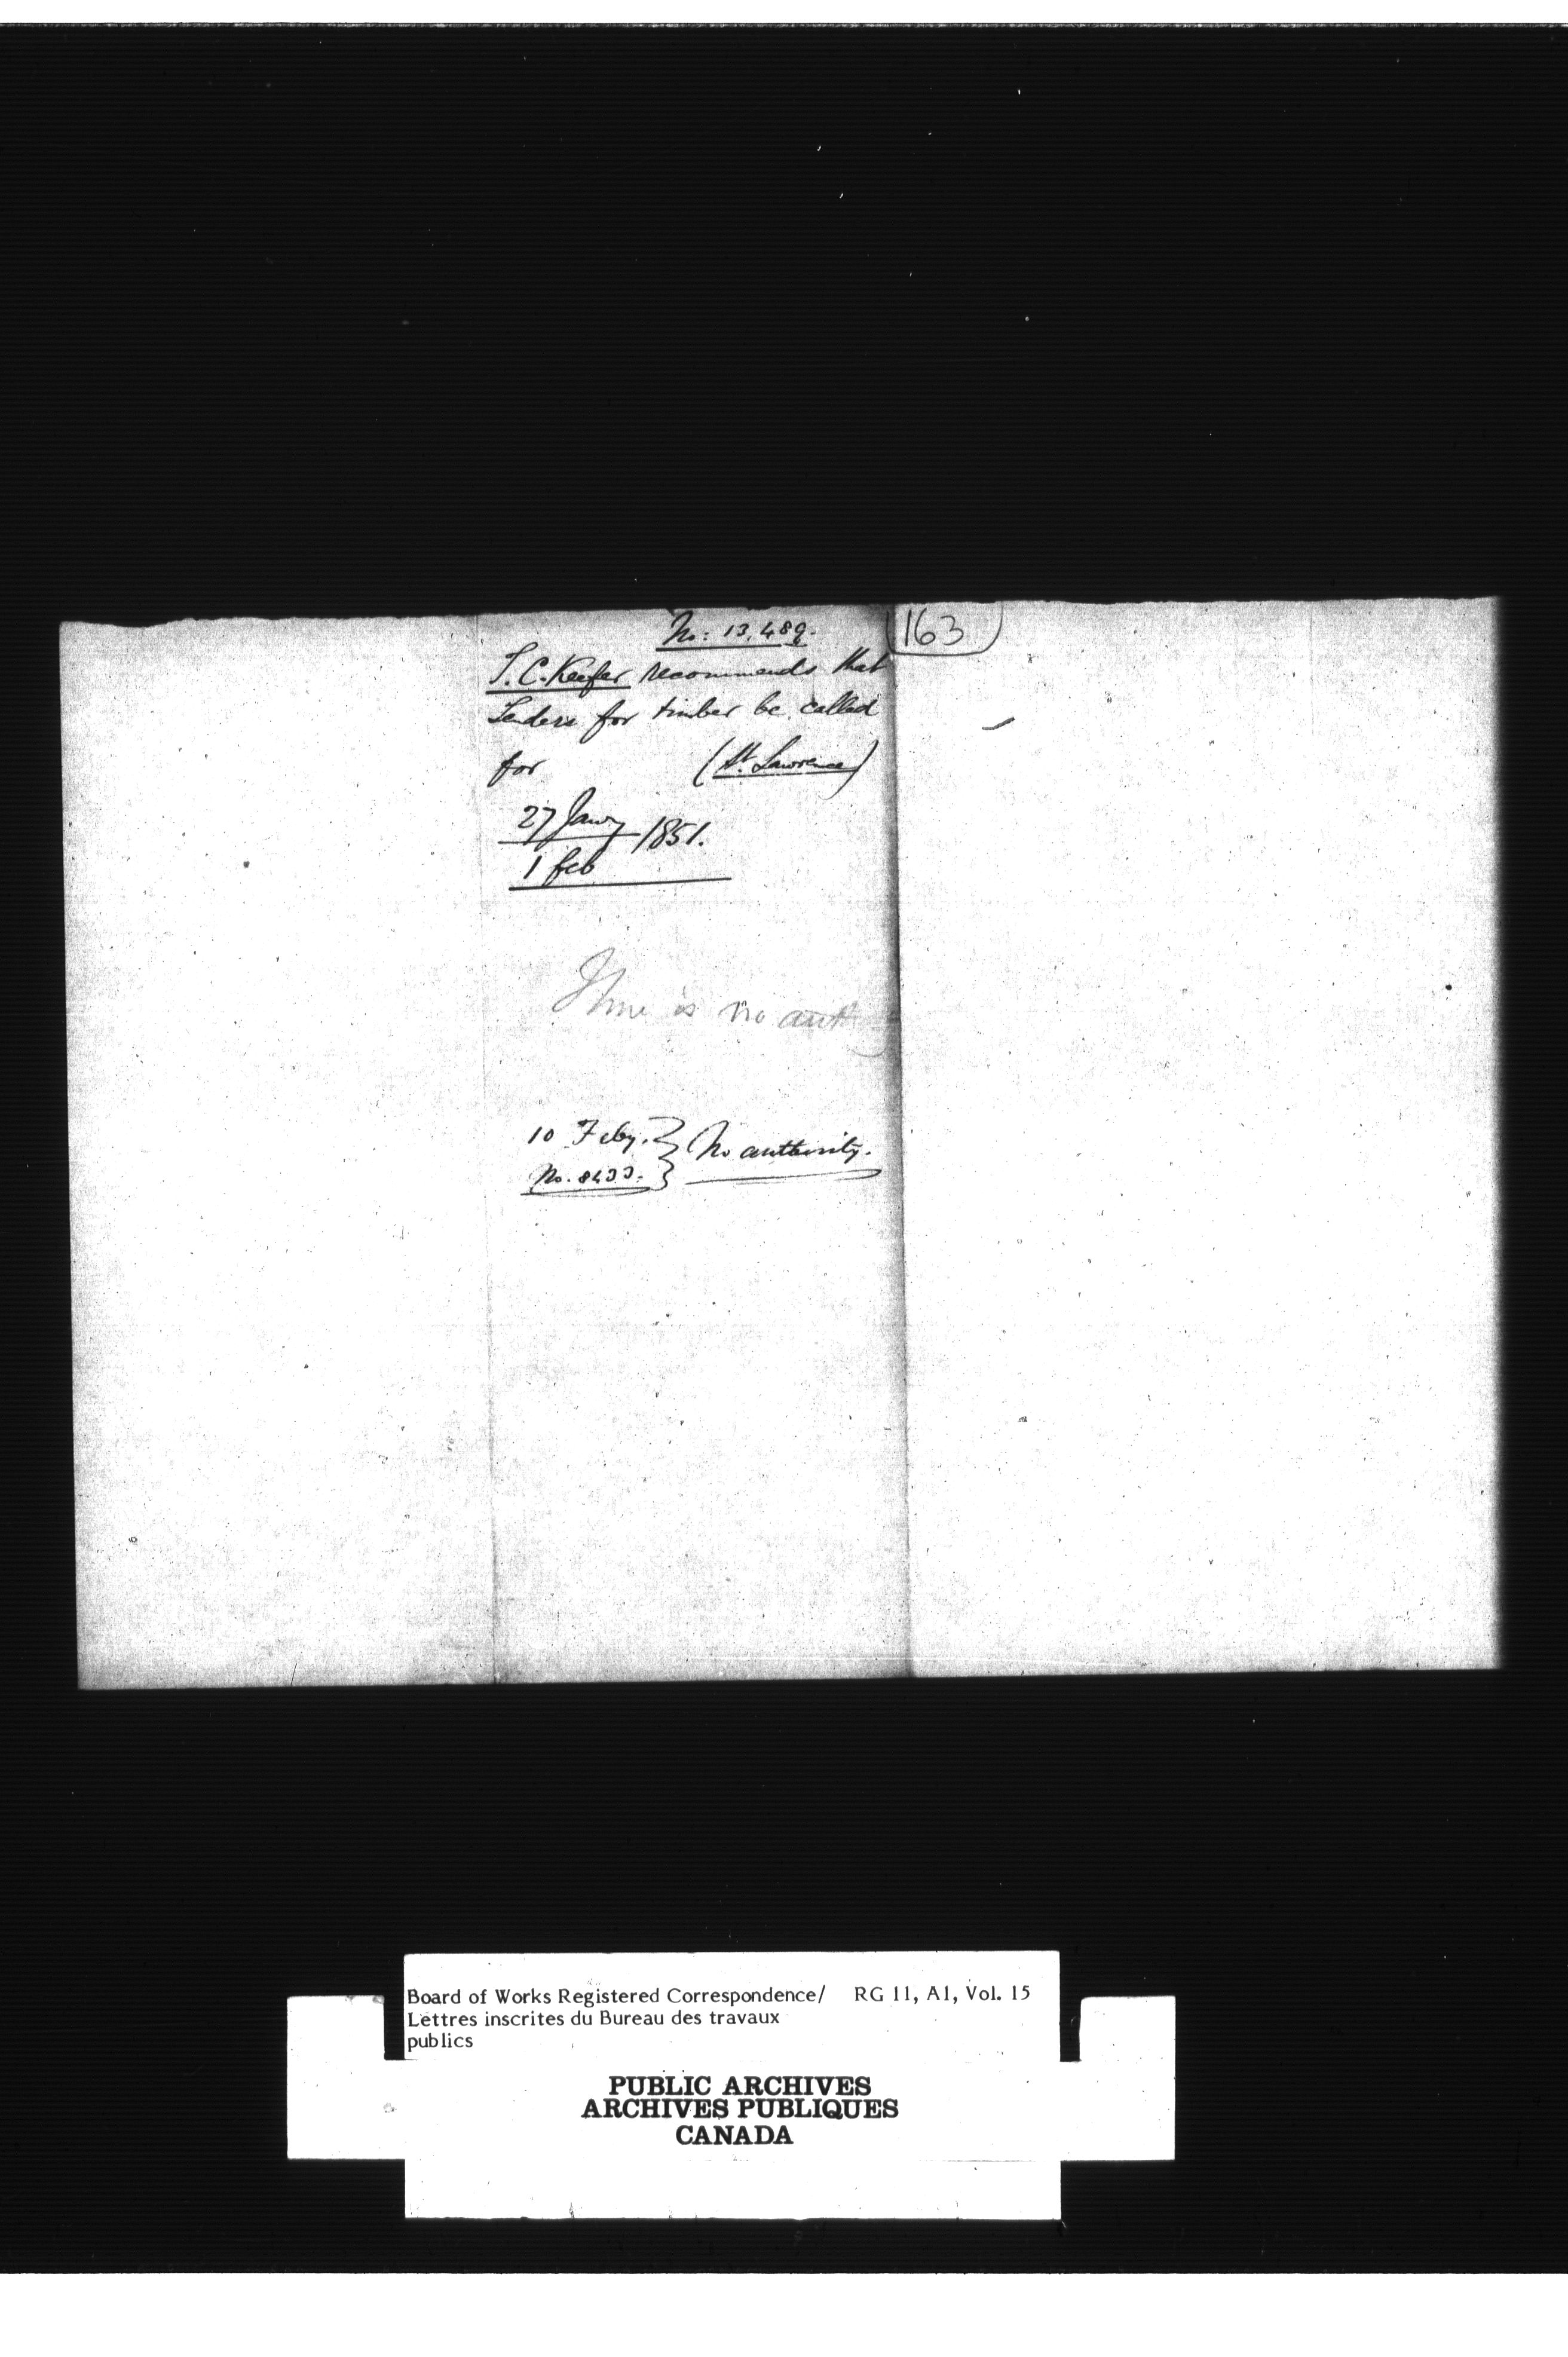 No: 13,489.
163
T. C. Keefer recommends that
Tenders for timber be called
for (St. Lawrence)
27 Jany
1 feb 1851.
There is no auth
10 Feby. } No authority.
No.
Board of Works Registered Correspondence/ RG 11, A1, Vol. 15
Lettres inscrites du Bureau des travaux
publics
PUBLIC ARCHIVES
ARCHIVES PUBLIQUES
CANADA